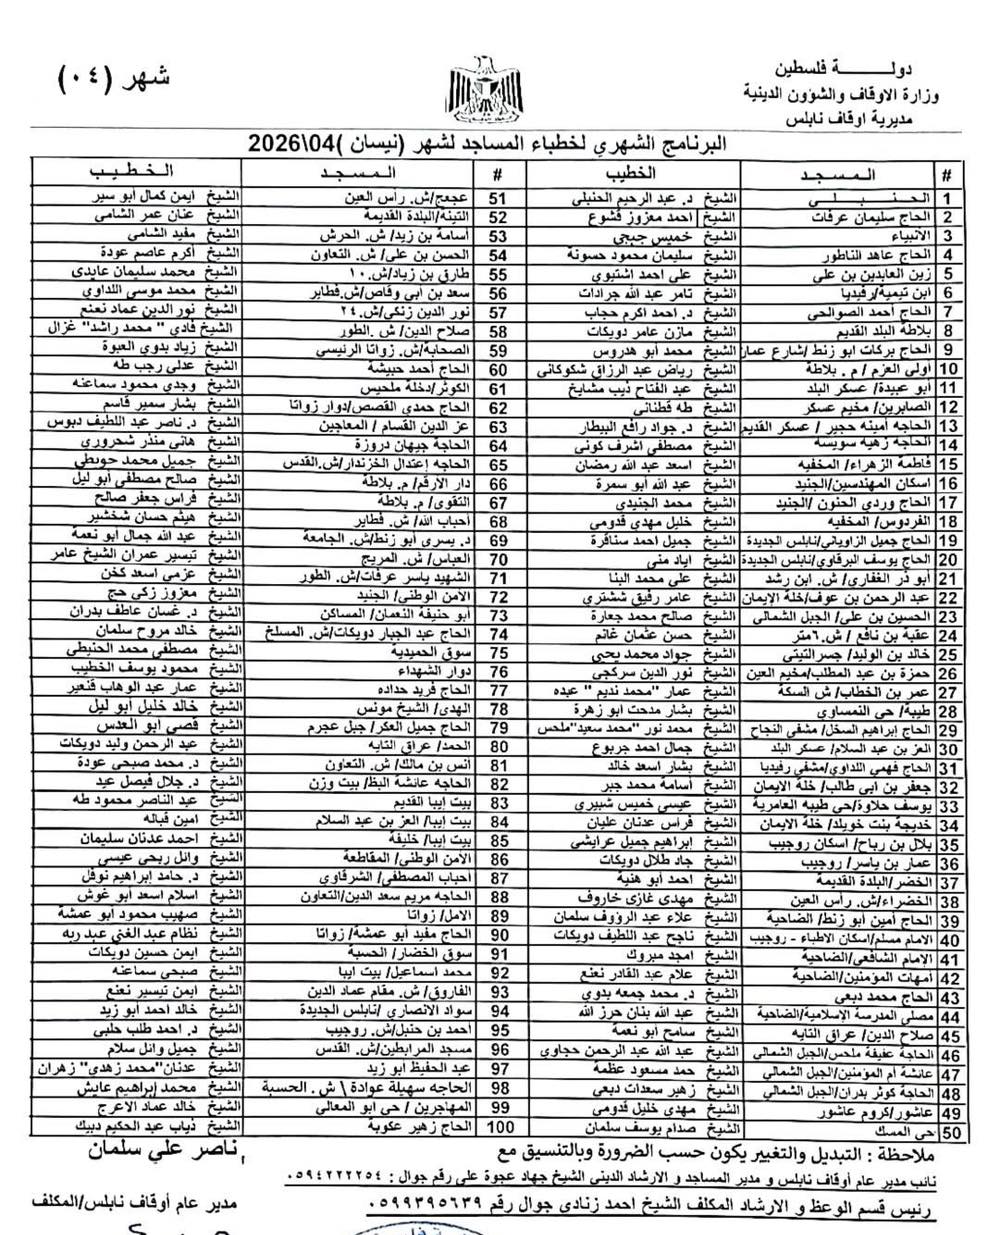 دولـــــة فلسطين
وزارة الاوقاف والشؤون الدينية
مديرية اوقاف نابلس
شهر (٠٤)
البرنامج الشهري لخطباء المساجد لشهر (نيسان )04\2026
# المسجد الخطيب # المسجد الخطيب
1 الحنبلي الشيخ د. عبد الرحيم الحنبلي 51 عجعج/ش. رأس العين الشيخ ايمن كمال أبو سير
2 الحاج سليمان عرفات الشيخ احمد معزوز قشوع 52 التينة/البلدة القديمة الشيخ عنان عمر الشامي
3 الانبياء الشيخ خميس جبجي 53 أسامة بن زيد/ ش. الحرش الشيخ مفيد الشامي
4 الحاج عاهد الناطور الشيخ سليمان محمود حسونة 54 الحسن بن علي/ ش. التعاون الشيخ أكرم عاصم عودة
5 زين العابدين بن علي الشيخ علي احمد اشتيوي 55 طارق بن زياد/ش.١٠ الشيخ محمد سليمان عابدي
6 ابن تيمية/رفيديا الشيخ ثامر عبد الله جرادات 56 سعد بن ابي وقاص/ش.فطاير الشيخ محمد موسى اللداوي
7 الحاج أحمد الصوالحي الشيخ د. احمد اكرم حجاب 57 نور الدين زنكي/ش.٢٤ الشيخ نور الدين عماد نعنع
8 بلاطة البلد القديم الشيخ مازن عامر دويكات 58 صلاح الدين/ ش .الطور الشيخ فادي "محمد راشد" غزال
9 الحاج بركات ابو زنط /شارع عمار الشيخ محمد أبو هدروس 59 الصحابة/ش. زواتا الرئيسي الشيخ زياد بدوي العبوة
10 أولي العزم / م. بلاطة الشيخ رياض عبد الرزاق شكوكاني 60 الحاج أحمد حبيشة الشيخ عدلي رجب طه
11 أبو عبيدة/ عسكر البلد الشيخ عبد الفتاح ذيب مشايخ 61 الكوثر/دخلة ملحيس الشيخ وجدي محمود سماعنه
12 الصابرين/ مخيم عسكر الشيخ طه قطناني 62 الحاج حمدي القصص/دوار زواتا الشيخ بشار سمير قاسم
13 الحاجه أمينه حجير / عسكر القديم الشيخ د. جواد رافع البيطار 63 عز الدين القسام / المعاجين الشيخ د. ناصر عبد اللطيف دبوس
14 الحاجه زهية سويسة الشيخ مصطفى اشرف كوني 64 الحاجة جيهان دروزة الشيخ هاني منذر شحروري
15 فاطمة الزهراء/ المخفيه الشيخ اسعد عبد الله رمضان 65 الحاجه إعتدال الخزندار/ش.القدس الشيخ جميل محمد حويطي
16 اسكان المهندسين/الجنيد الشيخ عبد الله أبو سمرة 66 دار الأرقم/ م. بلاطة الشيخ صالح مصطفى أبو ليل
17 الحاج وردي الحنون /الجنيد الشيخ محمد الجنيدي 67 التقوى/ م. بلاطة الشيخ فراس جعفر صالح
18 الفردوس/ المخفيه الشيخ خليل مهدي قدومي 68 أحباب الله/ ش. فطاير الشيخ هيثم حسان شخشير
19 الحاج جميل الزاوياني/نابلس الجديدة الشيخ جميل احمد سناقرة 69 د. يسري أبو زنط/ش. الجامعة الشيخ عبد الله جمال أبو نعمة
20 الحاج يوسف البرقاوي/نابلس الجديدة الشيخ اياد مني 70 العباس/ ش. المريج الشيخ تيسير عمران الشيخ عامر
21 أبو ذر الغفاري/ ش. ابن رشد الشيخ علي محمد البنا 71 الشهيد ياسر عرفات/ش. الطور الشيخ عزمي اسعد كخن
22 عبد الرحمن بن عوف/خلة الايمان الشيخ عامر رفيق ششتري 72 الأمن الوطني/ الجنيد الشيخ معزوز زكي حج
23 الحسين بن علي/ الجبل الشمالي الشيخ صالح محمد جعارة 73 أبو حنيفة النعمان/ المساكن الشيخ د. غسان عاطف بدران
24 عقبة بن نافع / ش.٦متر الشيخ حسن عثمان غانم 74 الحاج عبد الجبار دويكات/ش. المسلخ الشيخ خالد مروح سلمان
25 خالد بن الوليد/ جسرالتيتي الشيخ جواد محمد يحيى 75 سوق الحميدية الشيخ مصطفى محمد الحنيطي
26 حمزة بن عبد المطلب/مخيم العين الشيخ نور الدين سركجي 76 دوار الشهداء الشيخ محمود يوسف الخطيب
27 عمر بن الخطاب/ ش السكة الشيخ عمار "محمد نديم " عبده 77 الحاج فريد حداده الشيخ عمار عبد الوهاب قنعير
28 طيبة/ حي النمساوي الشيخ بشار مدحت أبو زهرة 78 الهدى/ الشيخ مونس الشيخ خالد خليل أبو ليل
29 الحاج إبراهيم السخل/ مشفى النجاح الشيخ محمد نور "محمد سعيد"ملحس 79 الحاج جميل العكر/ جبل عجرم الشيخ قصي ابو العدس
30 العز بن عبد السلام/ عسكر البلد الشيخ جمال احمد جربوع 80 الحمد/ عراق التايه الشيخ عبد الرحمن وليد دويكات
31 الحاج فهمي اللداوي/مشفى رفيديا الشيخ بشار اسعد خالد 81 انس بن مالك/ ش. التعاون الشيخ د. محمد صبحي عودة
32 جعفر بن ابي طالب/ خلة الايمان الشيخ أسامة محمد جبر 82 الحاجه عائشة البظ/ بيت وزن الشيخ د. جلال فيصل عيد
33 يوسف حلاوة/حي طيبه العامرية الشيخ عيسى خميس شبيري 83 بيت إيبا القديم الشيخ عبد الناصر محمود طه
34 خديجة بنت خويلد/ خلة الايمان الشيخ فراس عدنان عليان 84 بيت إيبا/ العز بن عبد السلام الشيخ امين قباله
35 بلال بن رباح/ اسكان روجيب الشيخ إبراهيم جميل عرايشي 85 بيت إيبا/ خليفة الشيخ احمد عدنان سليمان
36 عمار بن ياسر/ روجيب الشيخ جاد طلال دويكات 86 الأمن الوطني/ المقاطعة الشيخ وائل ربحي عيسى
37 الخضر/البلدة القديمة الشيخ احمد أبو هنية 87 أحباب المصطفى/ الشرقاوي الشيخ د. حامد إبراهيم نوفل
38 الخضراء/ش. رأس العين الشيخ مهدي غازي خاروف 88 الحاجه مريم سعد الدين/التعاون الشيخ اسلام اسعد أبو غوش
39 الحاج أمين أبو زنط/ الضاحية الشيخ علاء عبد الرؤوف سلمان 89 الامل/ زواتا الشيخ صهيب محمود أبو عمشة
40 الامام مسلم/اسكان الاطباء - روجيب الشيخ ناجح عبد اللطيف دويكات 90 الحاج مفيد أبو عمشة/ زواتا الشيخ نظام عبد الغني عبد ربه
41 الامام الشافعي/الضاحية الشيخ امجد مبروك 91 سوق الخضار/ الحسبة الشيخ ايمن حسين دويكات
42 أمهات المؤمنين/الضاحية الشيخ علام عبد القادر نعنع 92 محمد اسماعيل/ بيت ايبا الشيخ صبحي سماعنه
43 الحاج محمد دبعي الشيخ د. محمد جمعه بدوي 93 الفاروق/ ش. مقام عماد الدين الشيخ ايمن تيسير نعنع
44 مصلى المدرسة الإسلامية/الضاحية الشيخ عبد الله بنان حرز الله 94 سواد الانصاري /نابلس الجديدة الشيخ خالد احمد أبو زيد
45 صلاح الدين/ عراق التايه الشيخ سامح أبو نعمة 95 أحمد بن حنبل/ش. روجيب الشيخ د. احمد طلب حلبي
46 الحاجة عفيفة ملحس/الجبل الشمالي الشيخ عبد الله عبد الرحمن حجاوي 96 مسجد المرابطين/ش. القدس الشيخ جميل وائل سلام
47 عائشة أم المؤمنين/الجبل الشمالي الشيخ حمد مسعود عظمة 97 عبد الحفيظ ابو زيد الشيخ عدنان"محمد زهدي" زهران
48 الحاجة كوثر بدران/الجبل الشمالي الشيخ زهير سعدات دبعي 98 الحاجه سهيلة عوادة \ ش. الحسبة الشيخ محمد إبراهيم عايش
49 عاشور/كروم عاشور الشيخ مهدي خليل قدومي 99 المهاجرين / حي ابو المعالي الشيخ خالد عماد الاعرج
50 حي المسك الشيخ صدام يوسف سلمان 100 الحاج زهير عكوبة الشيخ ذياب عبد الحكيم دبيك
ملاحظة : التبديل والتغيير يكون حسب الضرورة وبالتنسيق مع
نائب مدير عام أوقاف نابلس و مدير المساجد و الارشاد الديني الشيخ جهاد عجوة على رقم جوال : ٠٥٩٤٢٢٢٢٥٤
رئيس قسم الوعظ و الارشاد المكلف الشيخ احمد زنادي جوال رقم ٠٥٩٩٣٩٥٦٣٩
ناصر علي سلمان
مدير عام أوقاف نابلس/المكلف